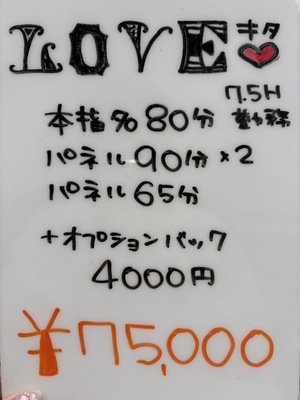 LOVE キタ
7.5H
本指名 80分 勤務
パネル 90分×2
パネル 65分
+オプションバック
4000円
¥75,000